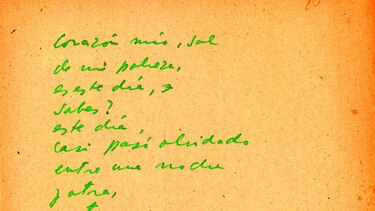 Corazón mío, sol
de mi pobreza,
es este día, ¿
sabes?
este día,
casi pasó olvidado
entre una noche
y otra,